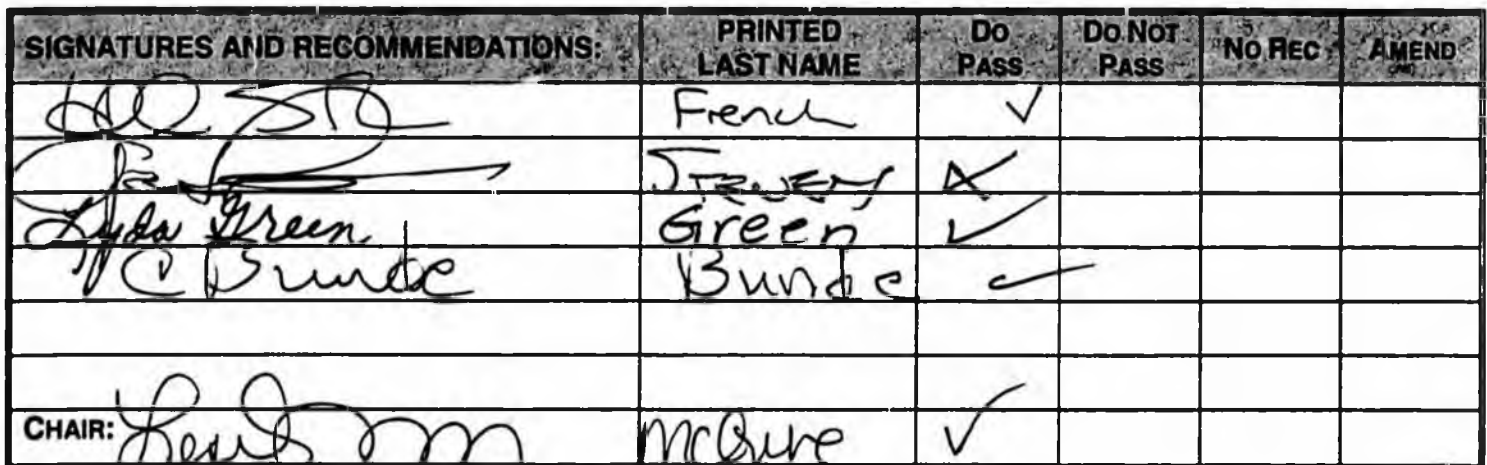 SIGNATURES AND RECOMMENDATIONS: PRINTED LAST NAME DO PASS DO NOT PASS NO REC AMEND
French ✓
Stevens
Lyda Green Green ✓
C Bunde Bunde ✓
CHAIR: McGuire ✓